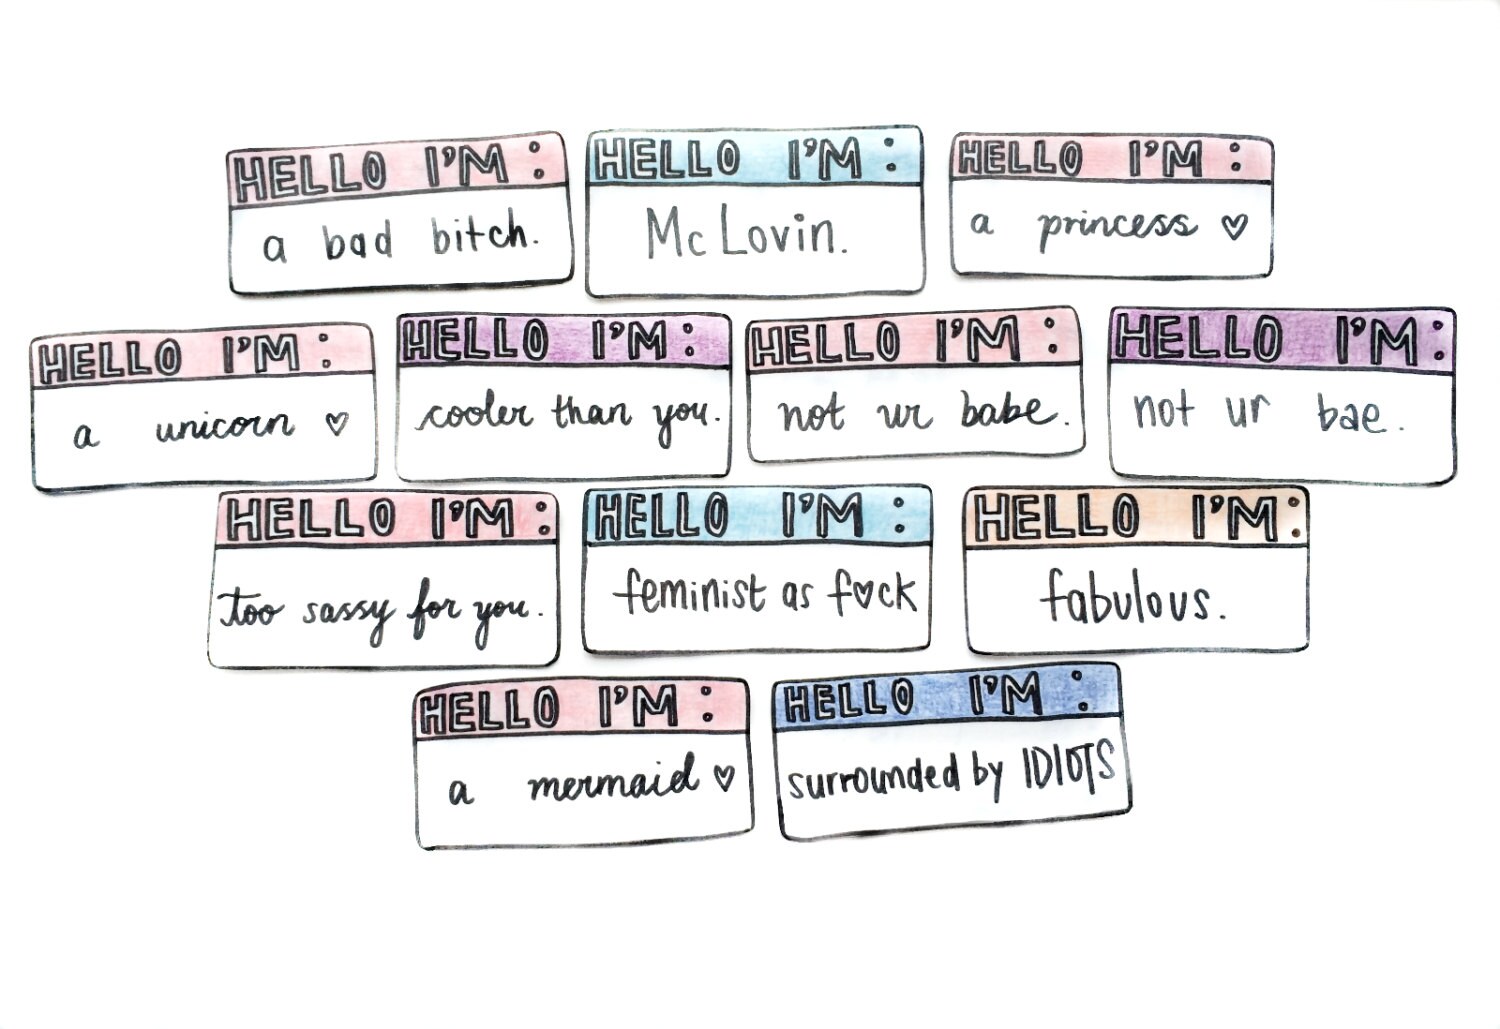 HELLO I'M:
a bad bitch.
HELLO I'M:
McLovin.
HELLO I'M:
a princess ♡
HELLO I'M:
a unicorn ♡
HELLO I'M:
cooler than you.
HELLO I'M:
not ur babe.
HELLO I'M:
not ur bae.
HELLO I'M:
too sassy for you.
HELLO I'M:
feminist as f♡ck
HELLO I'M:
fabulous.
HELLO I'M:
a mermaid ♡
HELLO I'M:
surrounded by IDIOTS